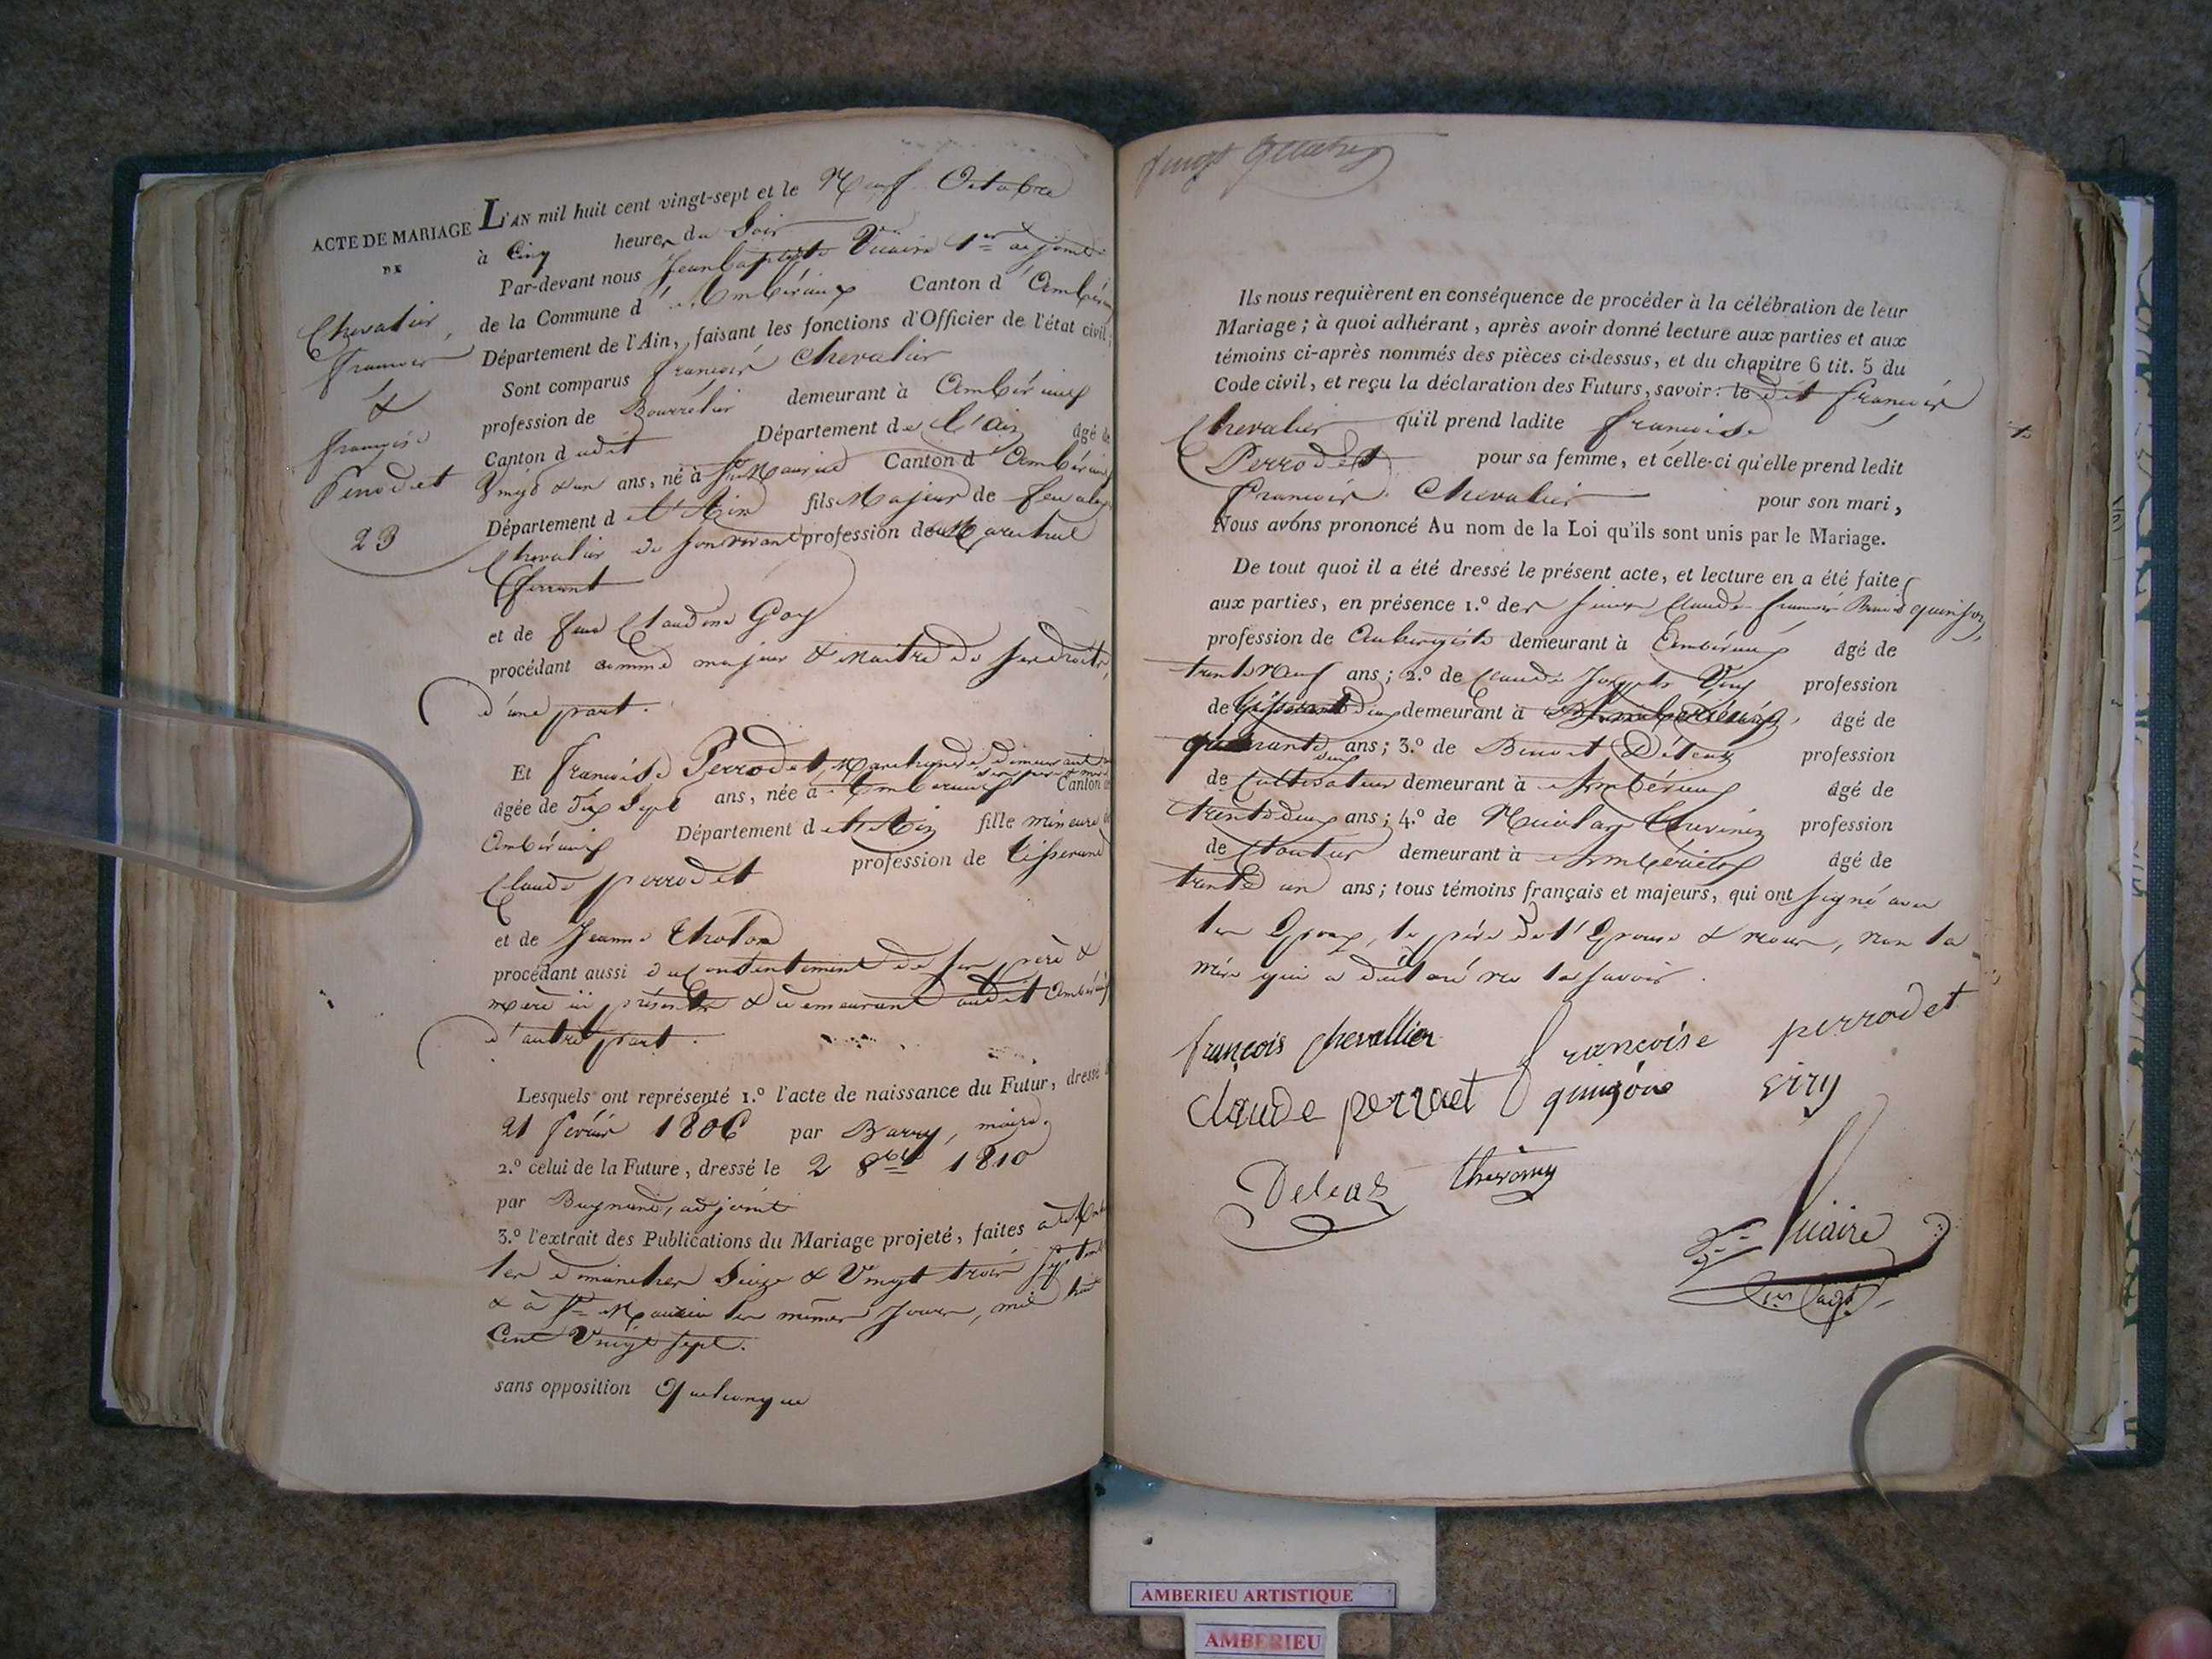 ACTE DE MARIAGE
DE
Chevalier
françois
&
françoise
Perrodet
23
L'AN mil huit cent vingt-sept et le Neuf Octobre
à Cinq heures du Soir
Par-devant nous Jean Baptiste Vicaire 1er adjoint
de la Commune d'Ambérieux Canton d'Ambérieux
Département de l'Ain, faisant les fonctions d'Officier de l'état civil;
Sont comparus françois Chevalier
profession de Bourrelier demeurant à Ambérieux
Canton dudit Département de l'Ain âgé de
Vingt & un ans, né à St Maurice Canton d'Ambérieux
Département de l'Ain fils Majeur de feu
Chevalier de son vivant profession de Marechal
fferrant
et de feue Claudine Goy
procédant comme majeur & maitre de ses droits,
d'une part.
Et françoise Perrodet, demeurant
ses pere & mere
âgée de Dix Sept ans, née à Ambérieux Canton
Ambérieux Département de l'Ain fille mineure
Claude perrodet profession de tisserand
et de Jeanne Cholon
procédant aussi du Consentement de ses père &
mère ici présents & demeurant audit Ambérieux
d'autre part.
Lesquels ont représenté 1.º l'acte de naissance du Futur, dressé
21 février 1806 par Barry, maire.
2.º celui de la Future, dressé le 2 8bre 1810
par Buynand, adjoint
3.º l'extrait des Publications du Mariage projeté, faites
les dimanches Seize & Vingt trois Septembre
& à St Maurice les mêmes Jours, mil huit
Cent Vingt sept.
sans opposition Quelconque
Ils nous requièrent en conséquence de procéder à la célébration de leur
Mariage; à quoi adhérant, après avoir donné lecture aux parties et aux
témoins ci-après nommés des pièces ci-dessus, et du chapitre 6 tit. 5 du
Code civil, et reçu la déclaration des Futurs, savoir: le dit françois
Chevalier qu'il prend ladite françoise
Perrodet pour sa femme, et celle-ci qu'elle prend ledit
françois Chevalier pour son mari,
Nous avons prononcé Au nom de la Loi qu'ils sont unis par le Mariage.
De tout quoi il a été dressé le présent acte, et lecture en a été faite
aux parties, en présence 1.º des sieurs Claude françois quinson,
profession de Aubergiste demeurant à Ambérieux âgé de
trente Neuf ans; 2.º de Claude Joseph profession
de demeurant à âgé de
quarante ans; 3.º de Benoit Deleaz profession
de Cultivateur demeurant à Ambérieux âgé de
trente deux ans; 4.º de Nicolas profession
de demeurant à Ambérieux âgé de
trente un ans; tous témoins français et majeurs, qui ont signé avec
les Epoux, le père de l'Epouse & nous, non la
mère qui a déclaré ne le savoir.
françois chevallier françoise perrodet
claude perrodet quinson viry
Deleaz thevenin
Vicaire
1er adjt
AMBERIEU ARTISTIQUE
AMBERIEU